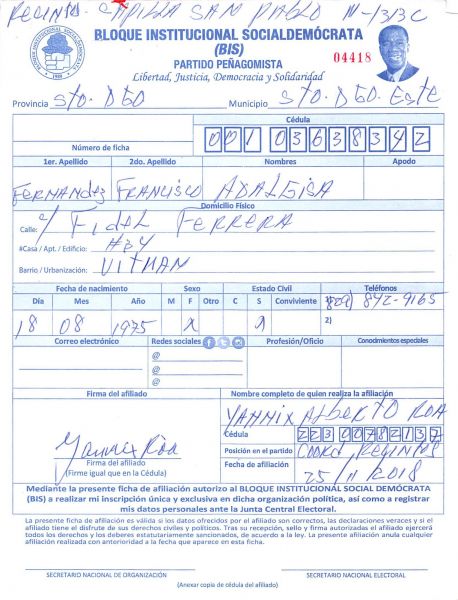 Recinto - CAPILLA SAN PABLO
BLOQUE INSTITUCIONAL SOCIALDEMÓCRATA
(BIS)
04418
PARTIDO PEÑAGOMISTA
Libertad, Justicia, Democracia y Solidaridad
Provincia Sto. Dgo Municipio Sto. Dgo. Este
Cédula
Número de ficha 001 0363834 2
1er. Apellido 2do. Apellido Nombres Apodo
FERNANDEZ FRANCISCO ADALGISA
Domicilio Físico
Calle: c/ FIDEL FERRERA
#Casa / Apt. / Edificio: #34
Barrio / Urbanización: VITMAN
Fecha de nacimiento Sexo Estado Civil Teléfonos
Día Mes Año M F Otro C S Conviviente 1) 829) 842-9165
18 08 1975 X X 2)
Correo electrónico Redes sociales Profesión/Oficio Conocimientos especiales
@
@
@
Firma del afiliado Nombre completo de quien realiza la afiliación
YANNIX Alberto ROA
Cédula 223 0078213 7
Yannix Roa
Firma del afiliado
(Firme igual que en la Cédula)
Posición en el partido Coord. Recintos
Fecha de afiliación 25/11/2018
Mediante la presente ficha de afiliación autorizo al BLOQUE INSTITUCIONAL SOCIAL DEMÓCRATA
(BIS) a realizar mi inscripción única y exclusiva en dicha organización política, así como a registrar
mis datos personales ante la Junta Central Electoral.
La presente ficha de afiliación es válida si los datos ofrecidos por el afiliado son correctos, las declaraciones veraces y si el
afiliado tiene el disfrute de sus derechos civiles y políticos. Tras su recepción, sello y firma autorizados el afiliado ejercerá
todos los derechos y los deberes estatutariamente sancionados, de acuerdo a la ley. La presente afiliación anula cualquier
afiliación realizada con anterioridad a la fecha que aparece en esta ficha.
SECRETARIO NACIONAL DE ORGANIZACIÓN SECRETARIO NACIONAL ELECTORAL
(Anexar copia de cédula del afiliado)